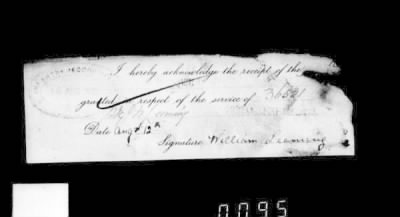 I hereby acknowledge the receipt of the
granted in respect of the service of 36581
Date Augt 12th
Signature William Leeming
0095